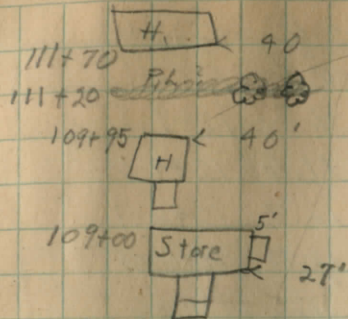 H. 40
111+70
111+20
109+95 40'
H
5'
109+00 Store
27'